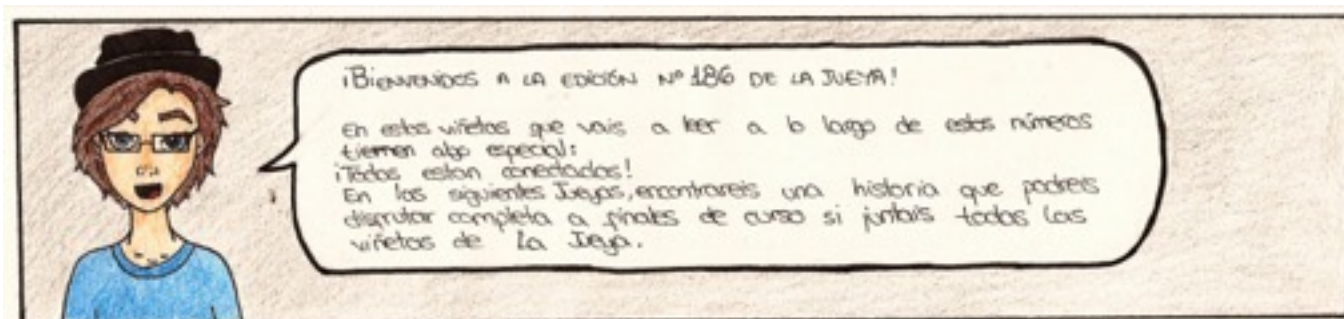 ¡BIENVENIDOS A LA EDICIÓN Nº 186 DE LA JUEYA!
En estas viñetas que vais a leer a lo largo de estos números
tienen algo especial:
¡Todas estan conectadas!
En las siguientes Jueyas, encontrareis una historia que podreis
disfrutar completa a finales de curso si juntais todas las
viñetas de La Jueya.